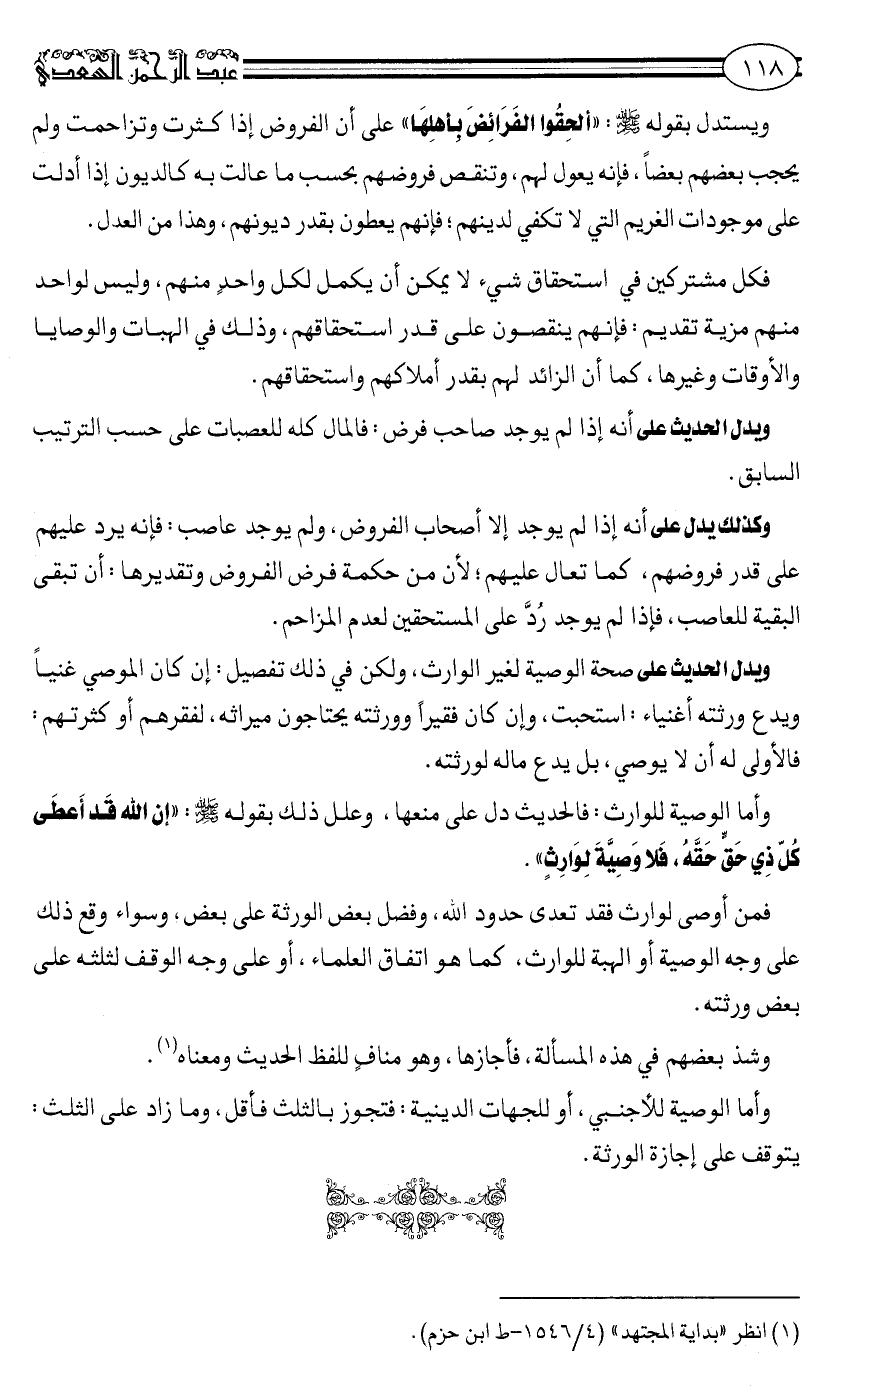 ١١٨
عبد الرحمن السعدي
ويستدل بقوله ﷺ: «ألحِقُوا الفَرَائِضَ بِأَهلِهَا» على أن الفروض إذا كثرت وتزاحمت ولم
يحجب بعضهم بعضاً، فإنه يعول لهم، وتنقص فروضهم بحسب ما عالت به كالديون إذا أدلت
على موجودات الغريم التي لا تكفي لدينهم؛ فإنهم يعطون بقدر ديونهم، وهذا من العدل.
فكل مشتركين في استحقاق شيء لا يمكن أن يكمل لكل واحدٍ منهم، وليس لواحد
منهم مزية تقديم: فإنهم ينقصون على قدر استحقاقهم، وذلك في الهبات والوصايا
والأوقات وغيرها، كما أن الزائد لهم بقدر أملاكهم واستحقاقهم.
ويدل الحديث على أنه إذا لم يوجد صاحب فرض: فالمال كله للعصبات على حسب الترتيب
السابق.
وكذلك يدل على أنه إذا لم يوجد إلا أصحاب الفروض، ولم يوجد عاصب: فإنه يرد عليهم
على قدر فروضهم، كما تعال عليهم؛ لأن من حكمة فرض الفروض وتقديرها: أن تبقى
البقية للعاصب، فإذا لم يوجد رُدَّ على المستحقين لعدم المزاحم.
ويدل الحديث على صحة الوصية لغير الوارث، ولكن في ذلك تفصيل: إن كان الموصي غنياً
ويدع ورثته أغنياء: استحبت، وإن كان فقيراً وورثته يحتاجون ميراثه، لفقرهم أو كثرتهم:
فالأولى له أن لا يوصي، بل يدع ماله لورثته.
وأما الوصية للوارث: فالحديث دل على منعها، وعلل ذلك بقوله ﷺ: «إن الله قَد أَعطَى
كُلّ ذِي حَقٍّ حَقَّهُ، فَلا وَصِيَّةَ لِوَارِثٍ».
فمن أوصى لوارث فقد تعدى حدود الله، وفضل بعض الورثة على بعض، وسواء وقع ذلك
على وجه الوصية أو الهبة للوارث، كما هو اتفاق العلماء، أو على وجه الوقف لثلثه على
بعض ورثته.
وشذ بعضهم في هذه المسألة، فأجازها، وهو منافٍ للفظ الحديث ومعناه(١).
وأما الوصية للأجنبي، أو للجهات الدينية: فتجوز بالثلث فأقل، وما زاد على الثلث:
يتوقف على إجازة الورثة.
(١) انظر «بداية المجتهد» (٤/١٥٤٦-ط ابن حزم).